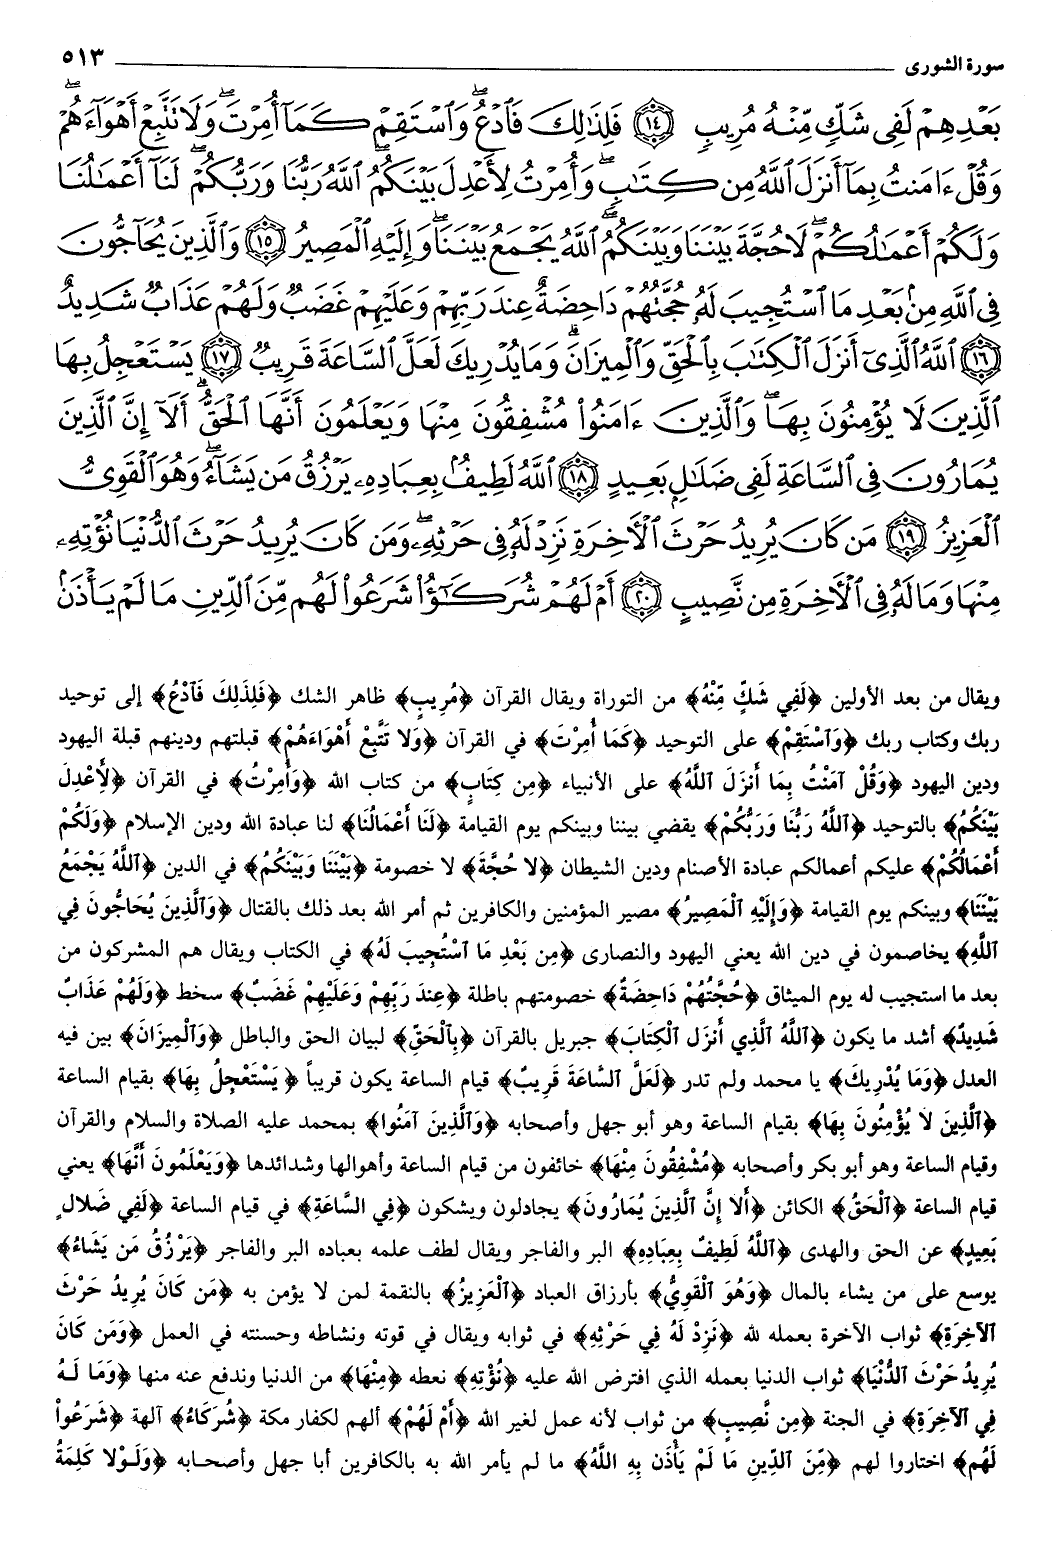 سورة الشورى ٥١٣
بَعْدِهِمْ لَفِى شَكٍّ مِّنْهُ مُرِيبٍ ١٤ فَلِذَٰلِكَ فَٱدْعُ ۖ وَٱسْتَقِمْ كَمَآ أُمِرْتَ ۖ وَلَا تَتَّبِعْ أَهْوَآءَهُمْ ۖ
وَقُلْ ءَامَنتُ بِمَآ أَنزَلَ ٱللَّهُ مِن كِتَٰبٍ ۖ وَأُمِرْتُ لِأَعْدِلَ بَيْنَكُمُ ۖ ٱللَّهُ رَبُّنَا وَرَبُّكُمْ ۖ لَنَآ أَعْمَٰلُنَا
وَلَكُمْ أَعْمَٰلُكُمْ ۖ لَا حُجَّةَ بَيْنَنَا وَبَيْنَكُمُ ۖ ٱللَّهُ يَجْمَعُ بَيْنَنَا ۖ وَإِلَيْهِ ٱلْمَصِيرُ ١٥ وَٱلَّذِينَ يُحَآجُّونَ
فِى ٱللَّهِ مِنۢ بَعْدِ مَا ٱسْتُجِيبَ لَهُۥ حُجَّتُهُمْ دَاحِضَةٌ عِندَ رَبِّهِمْ وَعَلَيْهِمْ غَضَبٌ وَلَهُمْ عَذَابٌ شَدِيدٌ
١٦ ٱللَّهُ ٱلَّذِىٓ أَنزَلَ ٱلْكِتَٰبَ بِٱلْحَقِّ وَٱلْمِيزَانَ ۗ وَمَا يُدْرِيكَ لَعَلَّ ٱلسَّاعَةَ قَرِيبٌ ١٧ يَسْتَعْجِلُ بِهَا
ٱلَّذِينَ لَا يُؤْمِنُونَ بِهَا ۖ وَٱلَّذِينَ ءَامَنُوا۟ مُشْفِقُونَ مِنْهَا وَيَعْلَمُونَ أَنَّهَا ٱلْحَقُّ ۗ أَلَآ إِنَّ ٱلَّذِينَ
يُمَارُونَ فِى ٱلسَّاعَةِ لَفِى ضَلَٰلٍۭ بَعِيدٍ ١٨ ٱللَّهُ لَطِيفٌۢ بِعِبَادِهِۦ يَرْزُقُ مَن يَشَآءُ ۖ وَهُوَ ٱلْقَوِىُّ
ٱلْعَزِيزُ ١٩ مَن كَانَ يُرِيدُ حَرْثَ ٱلْءَاخِرَةِ نَزِدْ لَهُۥ فِى حَرْثِهِۦ ۖ وَمَن كَانَ يُرِيدُ حَرْثَ ٱلدُّنْيَا نُؤْتِهِۦ
مِنْهَا وَمَا لَهُۥ فِى ٱلْءَاخِرَةِ مِن نَّصِيبٍ ٢٠ أَمْ لَهُمْ شُرَكَٰٓؤُا۟ شَرَعُوا۟ لَهُم مِّنَ ٱلدِّينِ مَا لَمْ يَأْذَنۢ
ويقال من بعد الأولين ﴿لَفِي شَكٍّ مِّنْهُ﴾ من التوراة ويقال القرآن ﴿مُرِيبٍ﴾ ظاهر الشك ﴿فَلِذَلِكَ فَٱدْعُ﴾ إلى توحيد
ربك وكتاب ربك ﴿وَٱسْتَقِمْ﴾ على التوحيد ﴿كَمَا أُمِرْتَ﴾ في القرآن ﴿وَلا تَتَّبِعْ أَهْوَاءَهُمْ﴾ قبلتهم ودينهم قبلة اليهود
ودين اليهود ﴿وَقُلْ آمَنْتُ بِمَا أَنزَلَ ٱللَّهُ﴾ على الأنبياء ﴿مِن كِتَابٍ﴾ من كتاب الله ﴿وَأُمِرْتُ﴾ في القرآن ﴿لأَعْدِلَ
بَيْنَكُمُ﴾ بالتوحيد ﴿ٱللَّهُ رَبُّنَا وَرَبُّكُمْ﴾ يقضي بيننا وبينكم يوم القيامة ﴿لَنَا أَعْمَالُنَا﴾ لنا عبادة الله ودين الإسلام ﴿وَلَكُمْ
أَعْمَالُكُمْ﴾ عليكم أعمالكم عبادة الأصنام ودين الشيطان ﴿لا حُجَّةَ﴾ لا خصومة ﴿بَيْنَنَا وَبَيْنَكُمُ﴾ في الدين ﴿ٱللَّهُ يَجْمَعُ
بَيْنَنَا﴾ وبينكم يوم القيامة ﴿وَإِلَيْهِ ٱلْمَصِيرُ﴾ مصير المؤمنين والكافرين ثم أمر الله بعد ذلك بالقتال ﴿وَٱلَّذِينَ يُحَاجُّونَ فِي
ٱللَّهِ﴾ يخاصمون في دين الله يعني اليهود والنصارى ﴿مِن بَعْدِ مَا ٱسْتُجِيبَ لَهُ﴾ في الكتاب ويقال هم المشركون من
بعد ما استجيب له يوم الميثاق ﴿حُجَّتُهُمْ دَاحِضَةٌ﴾ خصومتهم باطلة ﴿عِندَ رَبِّهِمْ وَعَلَيْهِمْ غَضَبٌ﴾ سخط ﴿وَلَهُمْ عَذَابٌ
شَدِيدٌ﴾ أشد ما يكون ﴿ٱللَّهُ ٱلَّذِي أَنزَل ٱلْكِتَابَ﴾ جبريل بالقرآن ﴿بِٱلْحَقِّ﴾ لبيان الحق والباطل ﴿وَٱلْمِيزَانَ﴾ بين فيه
العدل ﴿وَمَا يُدْرِيكَ﴾ يا محمد ولم تدر ﴿لَعَلَّ ٱلسَّاعَةَ قَرِيبٌ﴾ قيام الساعة يكون قريباً ﴿يَسْتَعْجِلُ بِهَا﴾ بقيام الساعة
﴿ٱلَّذِينَ لاَ يُؤْمِنُونَ بِهَا﴾ بقيام الساعة وهو أبو جهل وأصحابه ﴿وَٱلَّذِينَ آمَنُوا﴾ بمحمد عليه الصلاة والسلام والقرآن
وقيام الساعة وهو أبو بكر وأصحابه ﴿مُشْفِقُونَ مِنْهَا﴾ خائفون من قيام الساعة وأهوالها وشدائدها ﴿وَيَعْلَمُونَ أَنَّهَا﴾ يعني
قيام الساعة ﴿ٱلْحَقُّ﴾ الكائن ﴿أَلا إِنَّ ٱلَّذِينَ يُمَارُونَ﴾ يجادلون ويشكون ﴿فِي ٱلسَّاعَةِ﴾ في قيام الساعة ﴿لَفِي ضَلالٍ
بَعِيدٍ﴾ عن الحق والهدى ﴿ٱللَّهُ لَطِيفٌ بِعِبَادِهِ﴾ البر والفاجر ويقال لطف علمه بعباده البر والفاجر ﴿يَرْزُقُ مَن يَشَاءُ﴾
يوسع على من يشاء بالمال ﴿وَهُوَ ٱلْقَوِيُّ﴾ بأرزاق العباد ﴿ٱلْعَزِيزُ﴾ بالنقمة لمن لا يؤمن به ﴿مَن كَانَ يُرِيدُ حَرْثَ
ٱلآخِرَةِ﴾ ثواب الآخرة بعمله لله ﴿نَزِدْ لَهُ فِي حَرْثِهِ﴾ في ثوابه ويقال في قوته ونشاطه وحسنته في العمل ﴿وَمَن كَانَ
يُرِيدُ حَرْثَ ٱلدُّنْيَا﴾ ثواب الدنيا بعمله الذي افترض الله عليه ﴿نُؤْتِهِ﴾ نعطه ﴿مِنْهَا﴾ من الدنيا وندفع عنه منها ﴿وَمَا لَهُ
فِي ٱلآخِرَةِ﴾ في الجنة ﴿مِن نَّصِيبٍ﴾ من ثواب لأنه عمل لغير الله ﴿أَمْ لَهُمْ﴾ ألهم لكفار مكة ﴿شُرَكَاءُ﴾ آلهة ﴿شَرَعُواْ
لَهُم﴾ اختاروا لهم ﴿مِّنَ ٱلدِّينِ مَا لَمْ يَأْذَن بِهِ ٱللَّهُ﴾ ما لم يأمر الله به بالكافرين أبا جهل وأصحابه ﴿وَلَوْلا كَلِمَةُ